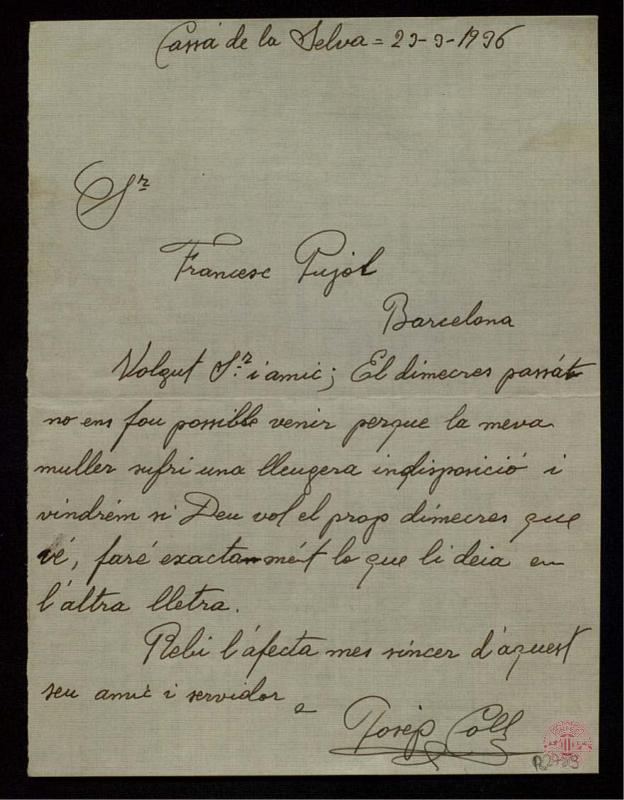 Cassá de la Selva = 23-3-1936
Sr
Francesc Pujol
Barcelona
Volgut Sr. i amic; El dimecres passát
no ens fou possible venir perque la meva
muller sufri una lleugera indisposició i
vindrém si Deu vol el prop dimecres que
vé, faré exactamént lo que li deia en
l'áltra lletra.
Rebi l'áfecta mes sincer d'áquest
seu amic i servidor
Josép Coll